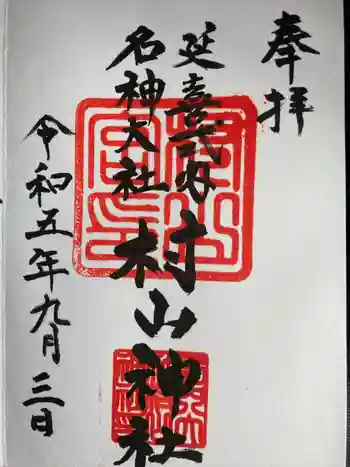 奉拝
延喜式内
名神大社
村山神社
令和五年九月三日